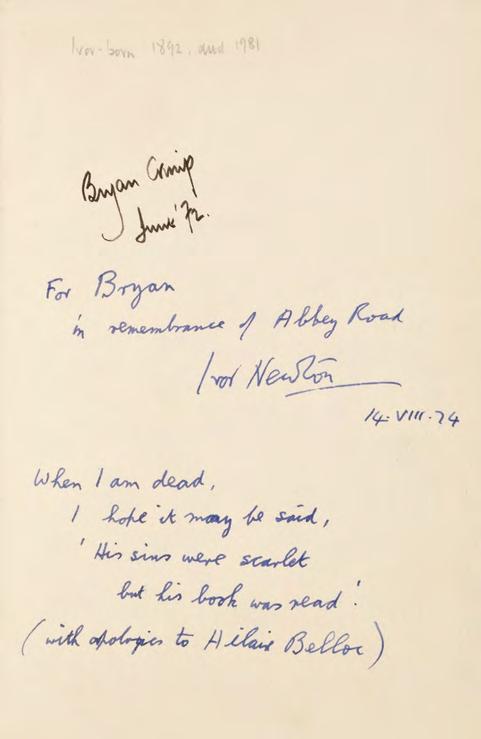 Ivor - born 1892, died 1981
Bryan Crimp
June '72.
For Bryan
in remembrance of Abbey Road
Ivor Newton
14.VIII.74
When I am dead,
I hope it may be said,
'His sins were scarlet
but his book was read'.
(with apologies to Hilair Belloc)